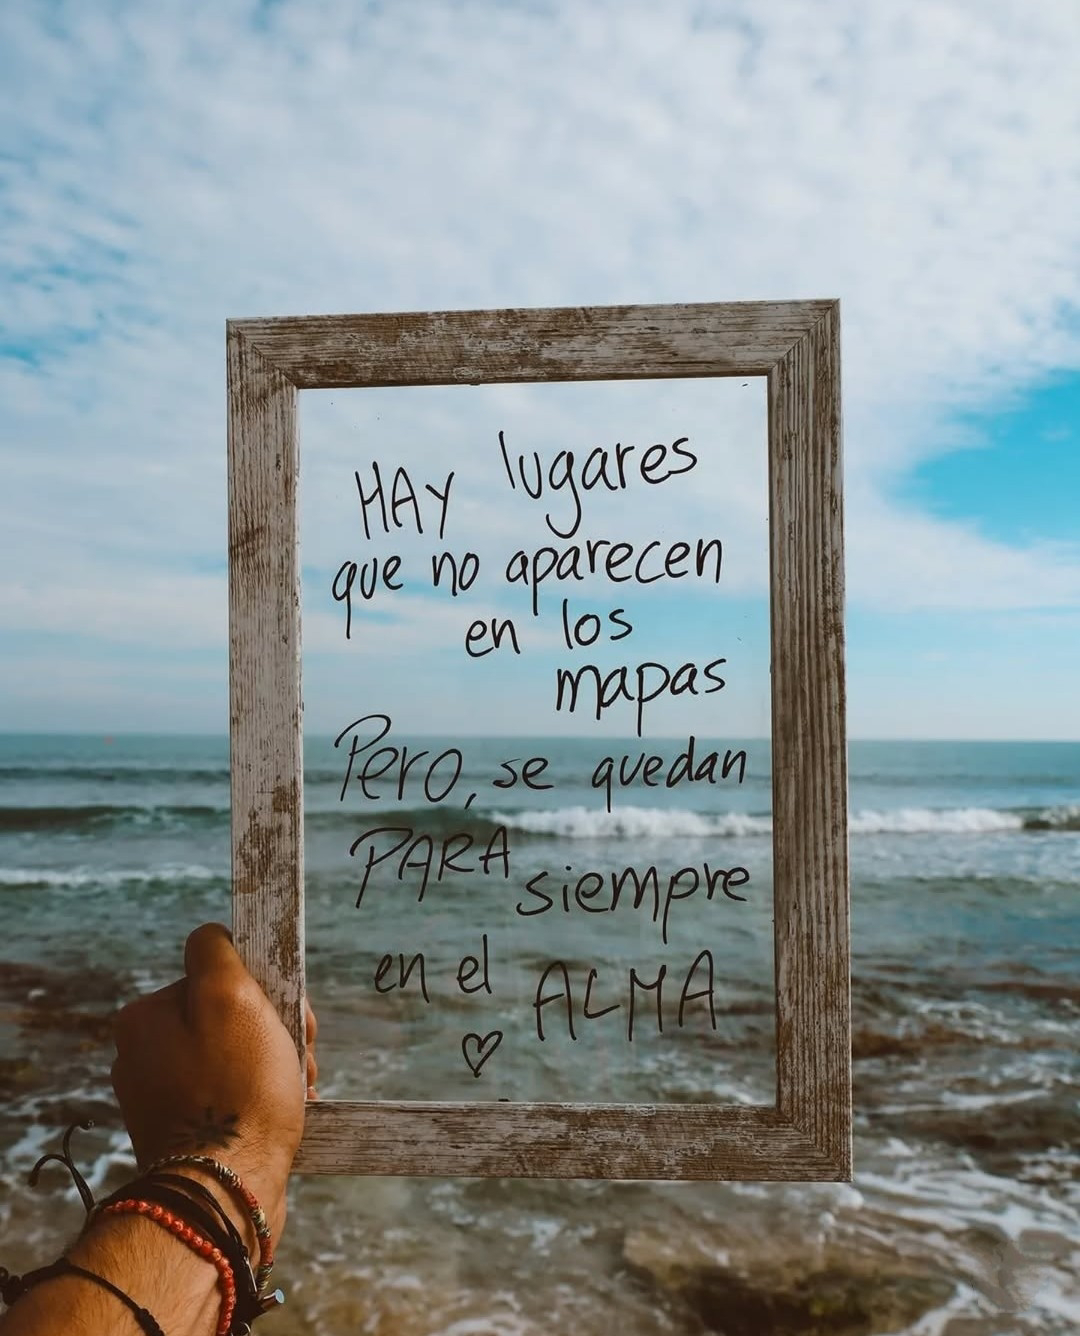 HAY lugares
que no aparecen
en los
mapas
Pero, se quedan
PARA siempre
en el ALMA
♡